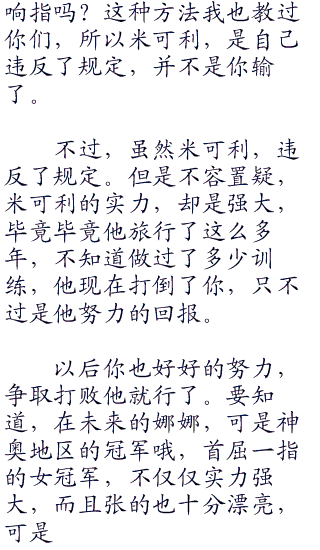 响指吗？这种方法我也教过
你们，所以米可利，是自己
违反了规定，并不是你输
了。
不过，虽然米可利，违
反了规定。但是不容置疑，
米可利的实力，却是强大，
毕竟毕竟他旅行了这么多
年，不知道做过了多少训
练，他现在打倒了你，只不
过是他努力的回报。
以后你也好好的努力，
争取打败他就行了。要知
道，在未来的娜娜，可是神
奥地区的冠军哦，首屈一指
的女冠军，不仅仅实力强
大，而且张的也十分漂亮，
可是